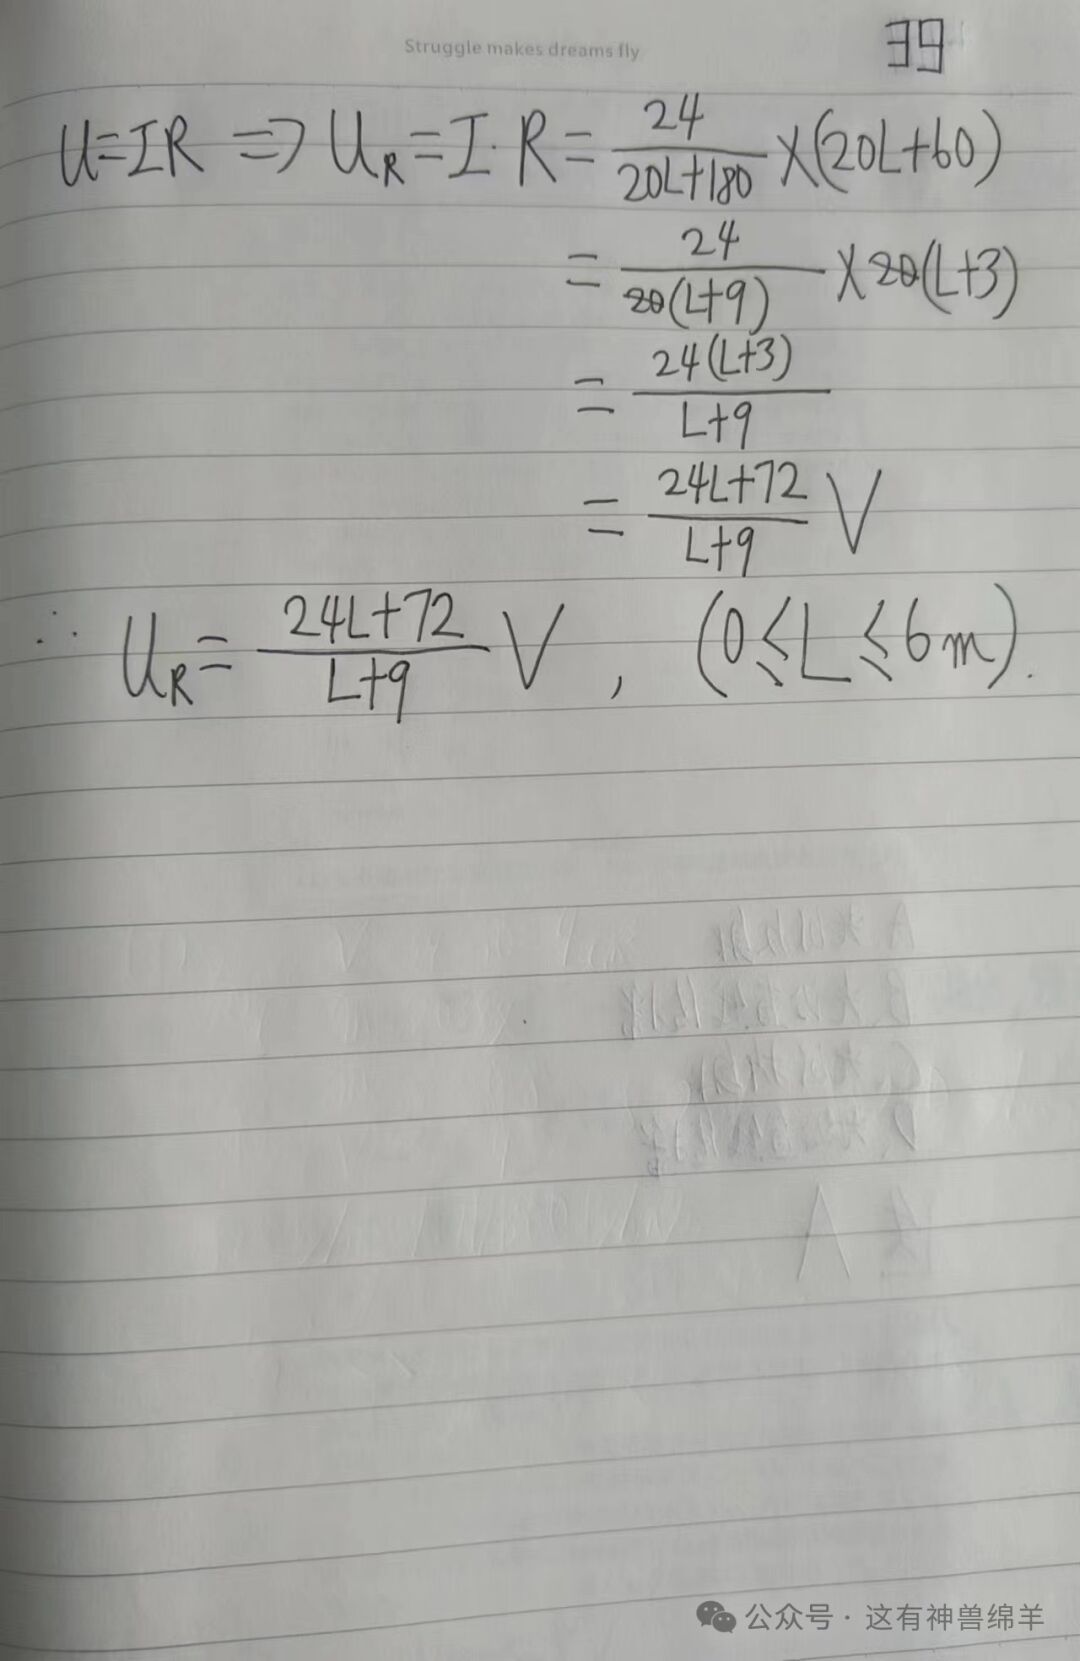 Struggle makes dreams fly
39
U=IR ⇒ U_R = I·R = 24/(20L+180) ×(20L+60)
= 24/(20(L+9)) ×20(L+3)
= 24(L+3)/(L+9)
= (24L+72)/(L+9) V
∴ U_R = (24L+72)/(L+9) V , (0≤L≤6m).
公众号·这有神兽绵羊